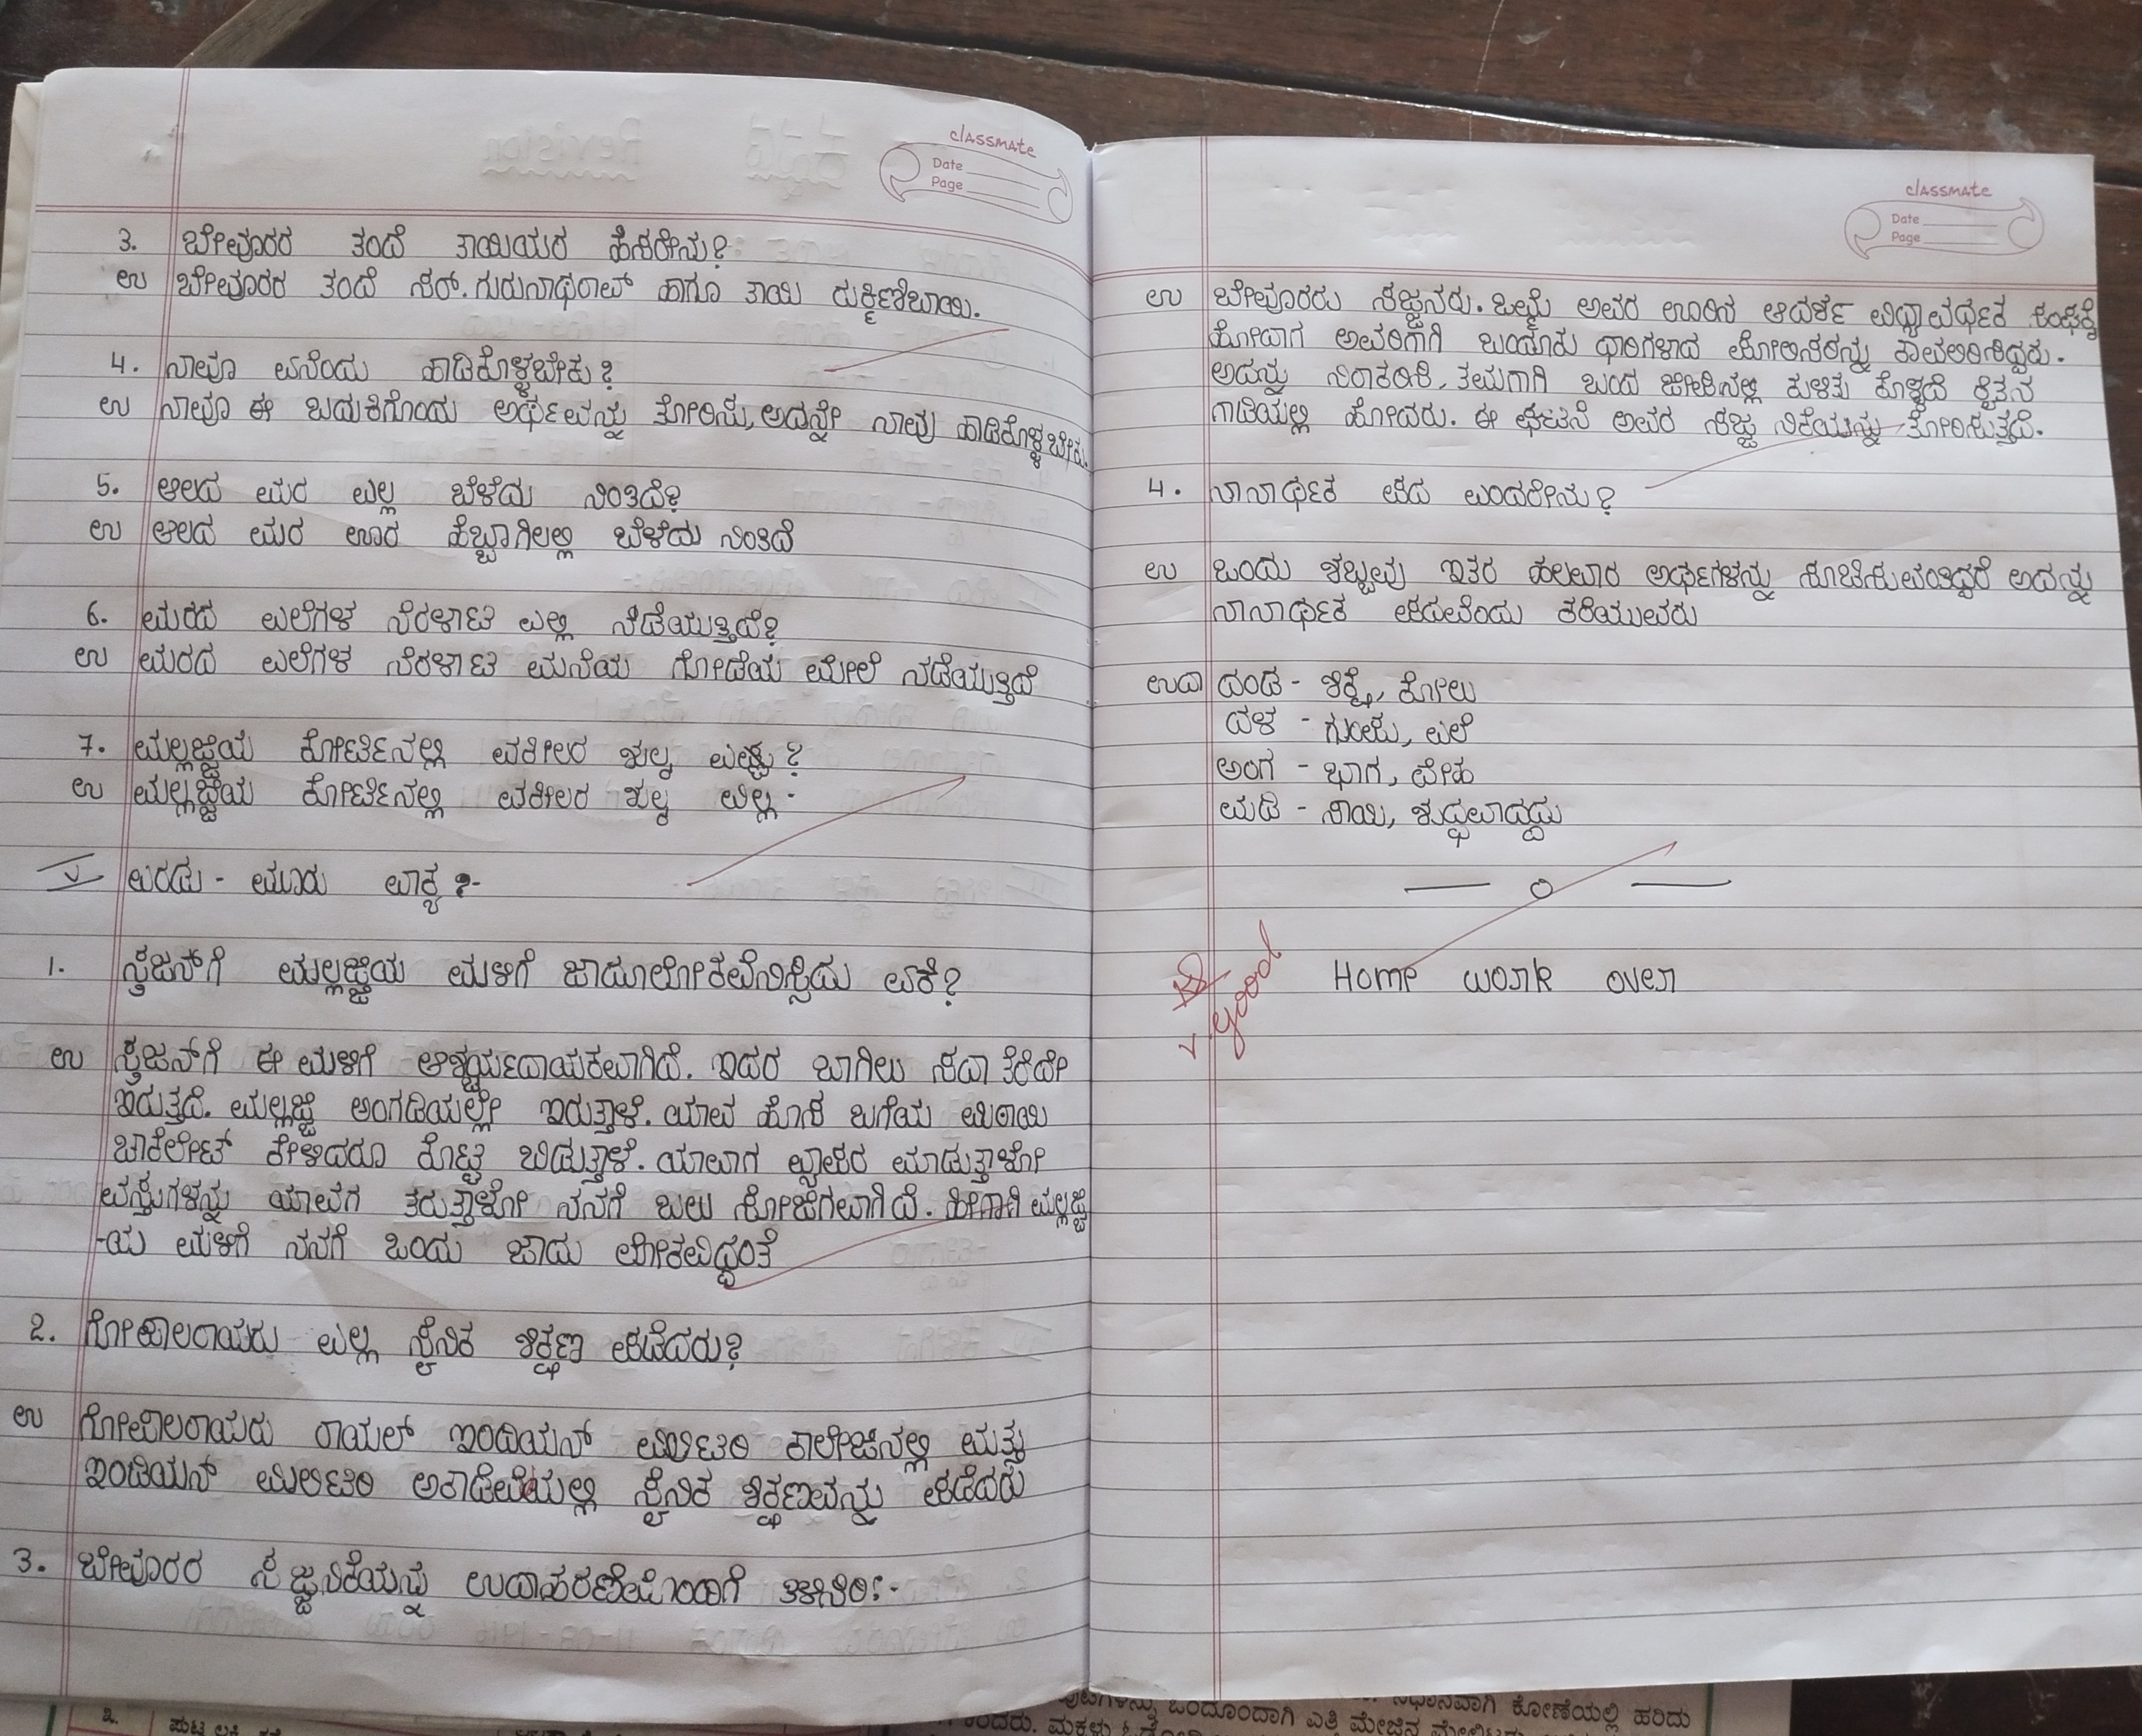 classmate
Date
Page
3. ಬೇವೂರರ ತಂದೆ ತಾಯಿಯರ ಹೆಸರೇನು?
ಉ ಬೇವೂರರ ತಂದೆ ಸರ್.ಗುರುನಾಥರಾವ್ ಹಾಗೂ ತಾಯಿ ರುಕ್ಮಿಣಿಬಾಯಿ.
4. ನಾವೂ ಏನೆಂದು ಹಾಡಿಕೊಳ್ಳಬೇಕು?
ಉ ನಾವೂ ಈ ಬದುಕಿಗೊಂದು ಅರ್ಥವನ್ನು ತೋರಿಸು, ಅದನ್ನೇ ನಾವು ಹಾಡಿಕೊಳ್ಳಬೇಕು.
5. ಆಲದ ಮರ ಎಲ್ಲಿ ಬೆಳೆದು ನಿಂತಿದೆ?
ಉ ಆಲದ ಮರ ಊರ ಹೆಬ್ಬಾಗಿಲಲ್ಲಿ ಬೆಳೆದು ನಿಂತಿದೆ
6. ಮರದ ಎಲೆಗಳ ನೆರಳಾಟ ಎಲ್ಲಿ ನೆಡೆಯುತ್ತಿದೆ?
ಉ ಮರದ ಎಲೆಗಳ ನೆರಳಾಟ ಮನೆಯ ಗೋಡೆಯ ಮೇಲೆ ನಡೆಯುತ್ತಿದೆ
7. ಮಲ್ಲಜ್ಜಿಯ ಕೋರ್ಟಿನಲ್ಲಿ ವಕೀಲರ ಶುಲ್ಕ ಎಷ್ಟು?
ಉ ಮಲ್ಲಜ್ಜಿಯ ಕೋರ್ಟಿನಲ್ಲಿ ವಕೀಲರ ಶುಲ್ಕ ಇಲ್ಲ.
V ಎರಡು - ಮೂರು ವಾಕ್ಯ :-
1. ಸೃಜನ್‌ಗೆ ಮಲ್ಲಜ್ಜಿಯ ಮಳಿಗೆ ಜಾದೂಲೋಕವೆನಿಸ್ಸಿದು ಏಕೆ?
ಉ ಸೃಜನ್‌ಗೆ ಈ ಮಳಿಗೆ ಆಶ್ಚರ್ಯದಾಯಕವಾಗಿದೆ. ಇದರ ಬಾಗಿಲು ಸದಾ ತೆರೆದೇ
ಇರುತ್ತದೆ. ಮಲ್ಲಜ್ಜಿ ಅಂಗಡಿಯಲ್ಲೇ ಇರುತ್ತಾಳೆ. ಯಾವ ಹೊಸ ಬಗೆಯ ಮಿಠಾಯಿ
ಚಾಕಲೇಟ್ ಕೇಳಿದರೂ ಕೊಟ್ಟು ಬಿಡುತ್ತಾಳೆ. ಯಾವಾಗ ವ್ಯಾಪಾರ ಮಾಡುತ್ತಾಳೋ
ವಸ್ತುಗಳನ್ನು ಯಾವಗ ತರುತ್ತಾಳೋ ನನಗೆ ಬಲು ಸೋಜಿಗವಾಗಿದೆ. ಹೀಗಾಗಿ ಮಲ್ಲಜ್ಜಿ
-ಯ ಮಳಿಗೆ ನನಗೆ ಒಂದು ಜಾದು ಲೋಕವಿದ್ದಂತೆ
2. ಗೋಪಾಲರಾಯರು ಎಲ್ಲಿ ಸೈನಿಕ ಶಿಕ್ಷಣ ಪಡೆದರು?
ಉ ಗೋಪಾಲರಾಯರು ರಾಯಲ್ ಇಂಡಿಯನ್ ಮಿಲಿಟರಿ ಕಾಲೇಜಿನಲ್ಲಿ ಮತ್ತು
ಇಂಡಿಯನ್ ಮಿಲಿಟರಿ ಅಕಾಡೆಮಿಯಲ್ಲಿ ಸೈನಿಕ ಶಿಕ್ಷಣವನ್ನು ಪಡೆದರು
3. ಬೇವೂರರ ಸಜ್ಜನಿಕೆಯನ್ನು ಉದಾಹರಣೆಯೊಂದಿಗೆ ತಿಳಿಸಿರಿ:-
classmate
Date
Page
ಉ ಬೇವೂರರು ಸಜ್ಜನರು. ಒಮ್ಮೆ ಅವರ ಊರಿನ ಆದರ್ಶ ವಿದ್ಯಾವರ್ಧಕ ಸಂಘಕ್ಕೆ
ಹೋದಾಗ ಅವರಿಗಾಗಿ ಬಂದೂಕು ಧಾರಿಗಳಾದ ಪೋಲಿಸರನ್ನು ಕಾವಲಿರಿಸಿದ್ದರು.
ಅದನ್ನು ನಿರಾಕರಿಸಿ, ತಮಗಾಗಿ ಬಂದ ಜೀಪಿನಲ್ಲಿ ಕುಳಿತು ಕೊಳ್ಳದೆ ರೈತನ
ಗಾಡಿಯಲ್ಲಿ ಹೋದರು. ಈ ಘಟನೆ ಅವರ ಸಜ್ಜ ನಿಕೆಯನ್ನು ತೋರಿಸುತ್ತದೆ.
4. ನಾನಾರ್ಥಕ ಪದ ಎಂದರೇನು?
ಉ ಒಂದು ಶಬ್ಬವು ಇತರ ಹಲವಾರ ಅರ್ಥಗಳನ್ನು ಸೂಚಿಸುವಂತಿದ್ದರೆ ಅದನ್ನು
ನಾನಾರ್ಥಕ ಪದವೆಂದು ಕರೆಯುವರು
ಉದಾ ದಂಡ - ಶಿಕ್ಷೆ, ಕೋಲು
ದಳ - ಗುಂಪು, ಎಲೆ
ಅಂಗ - ಭಾಗ, ದೇಹ
ಮಡಿ - ಸಾಯಿ, ಶುದ್ಧವಾದದ್ದು
— o —
Home work over
v.good